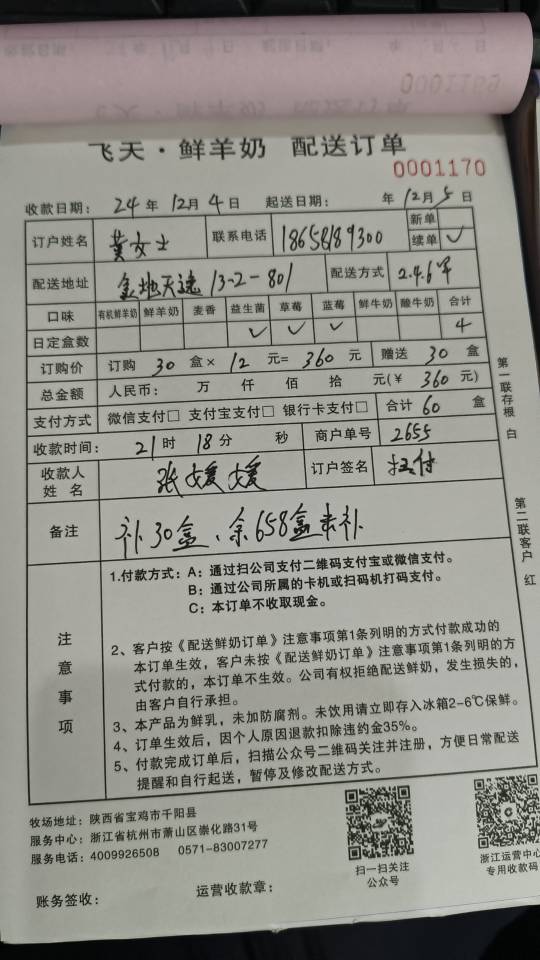 0001169
飞天·鲜羊奶 配送订单
0001170
收款日期： 24 年 12 月 4 日 起送日期： 年 12 月 5 日
订户姓名 黄女士 联系电话 18658189300 新单
续单 ✓
配送地址 金地天逸 13-2-801 配送方式 2.4.6
口味 有机鲜羊奶 鲜羊奶 麦香 益生菌 草莓 蓝莓 鲜牛奶 酸牛奶 合计
日定盒数 ✓ ✓ ✓ 4
订购价 订购 30 盒× 12 元= 360 元 赠送 30 盒
总金额 人民币： 万 仟 佰 拾 元(¥ 360 元)
支付方式 微信支付□ 支付宝支付□ 银行卡支付□ 合计 60 盒
收款时间： 21 时 18 分 秒 商户单号 2655
收款人姓名 张媛媛 订户签名 扫付
备注 补30盒、余658盒未补
第一联存根 白
第二联客户 红
注意事项
1.付款方式：A：通过扫公司支付二维码支付宝或微信支付。
B：通过公司所属的卡机或扫码机打码支付。
C：本订单不收取现金。
2、客户按《配送鲜奶订单》注意事项第1条列明的方式付款成功的
本订单生效，客户未按《配送鲜奶订单》注意事项第1条列明的方
式付款的，本订单不生效。公司有权拒绝配送鲜奶，发生损失的，
由客户自行承担。
3、本产品为鲜乳，未加防腐剂。未饮用请立即存入冰箱2-6℃保鲜。
4、订单生效后，因个人原因退款扣除违约金35%。
5、付款完成订单后，扫描公众号二维码关注并注册，方便日常配送
提醒和自行起送，暂停及修改配送方式。
牧场地址：陕西省宝鸡市千阳县
服务中心：浙江省杭州市萧山区崇化路31号
服务电话：4009926508 0571-83007277
扫一扫关注
公众号
浙江运营中心
专用收款码
账务签收： 运营收款章：